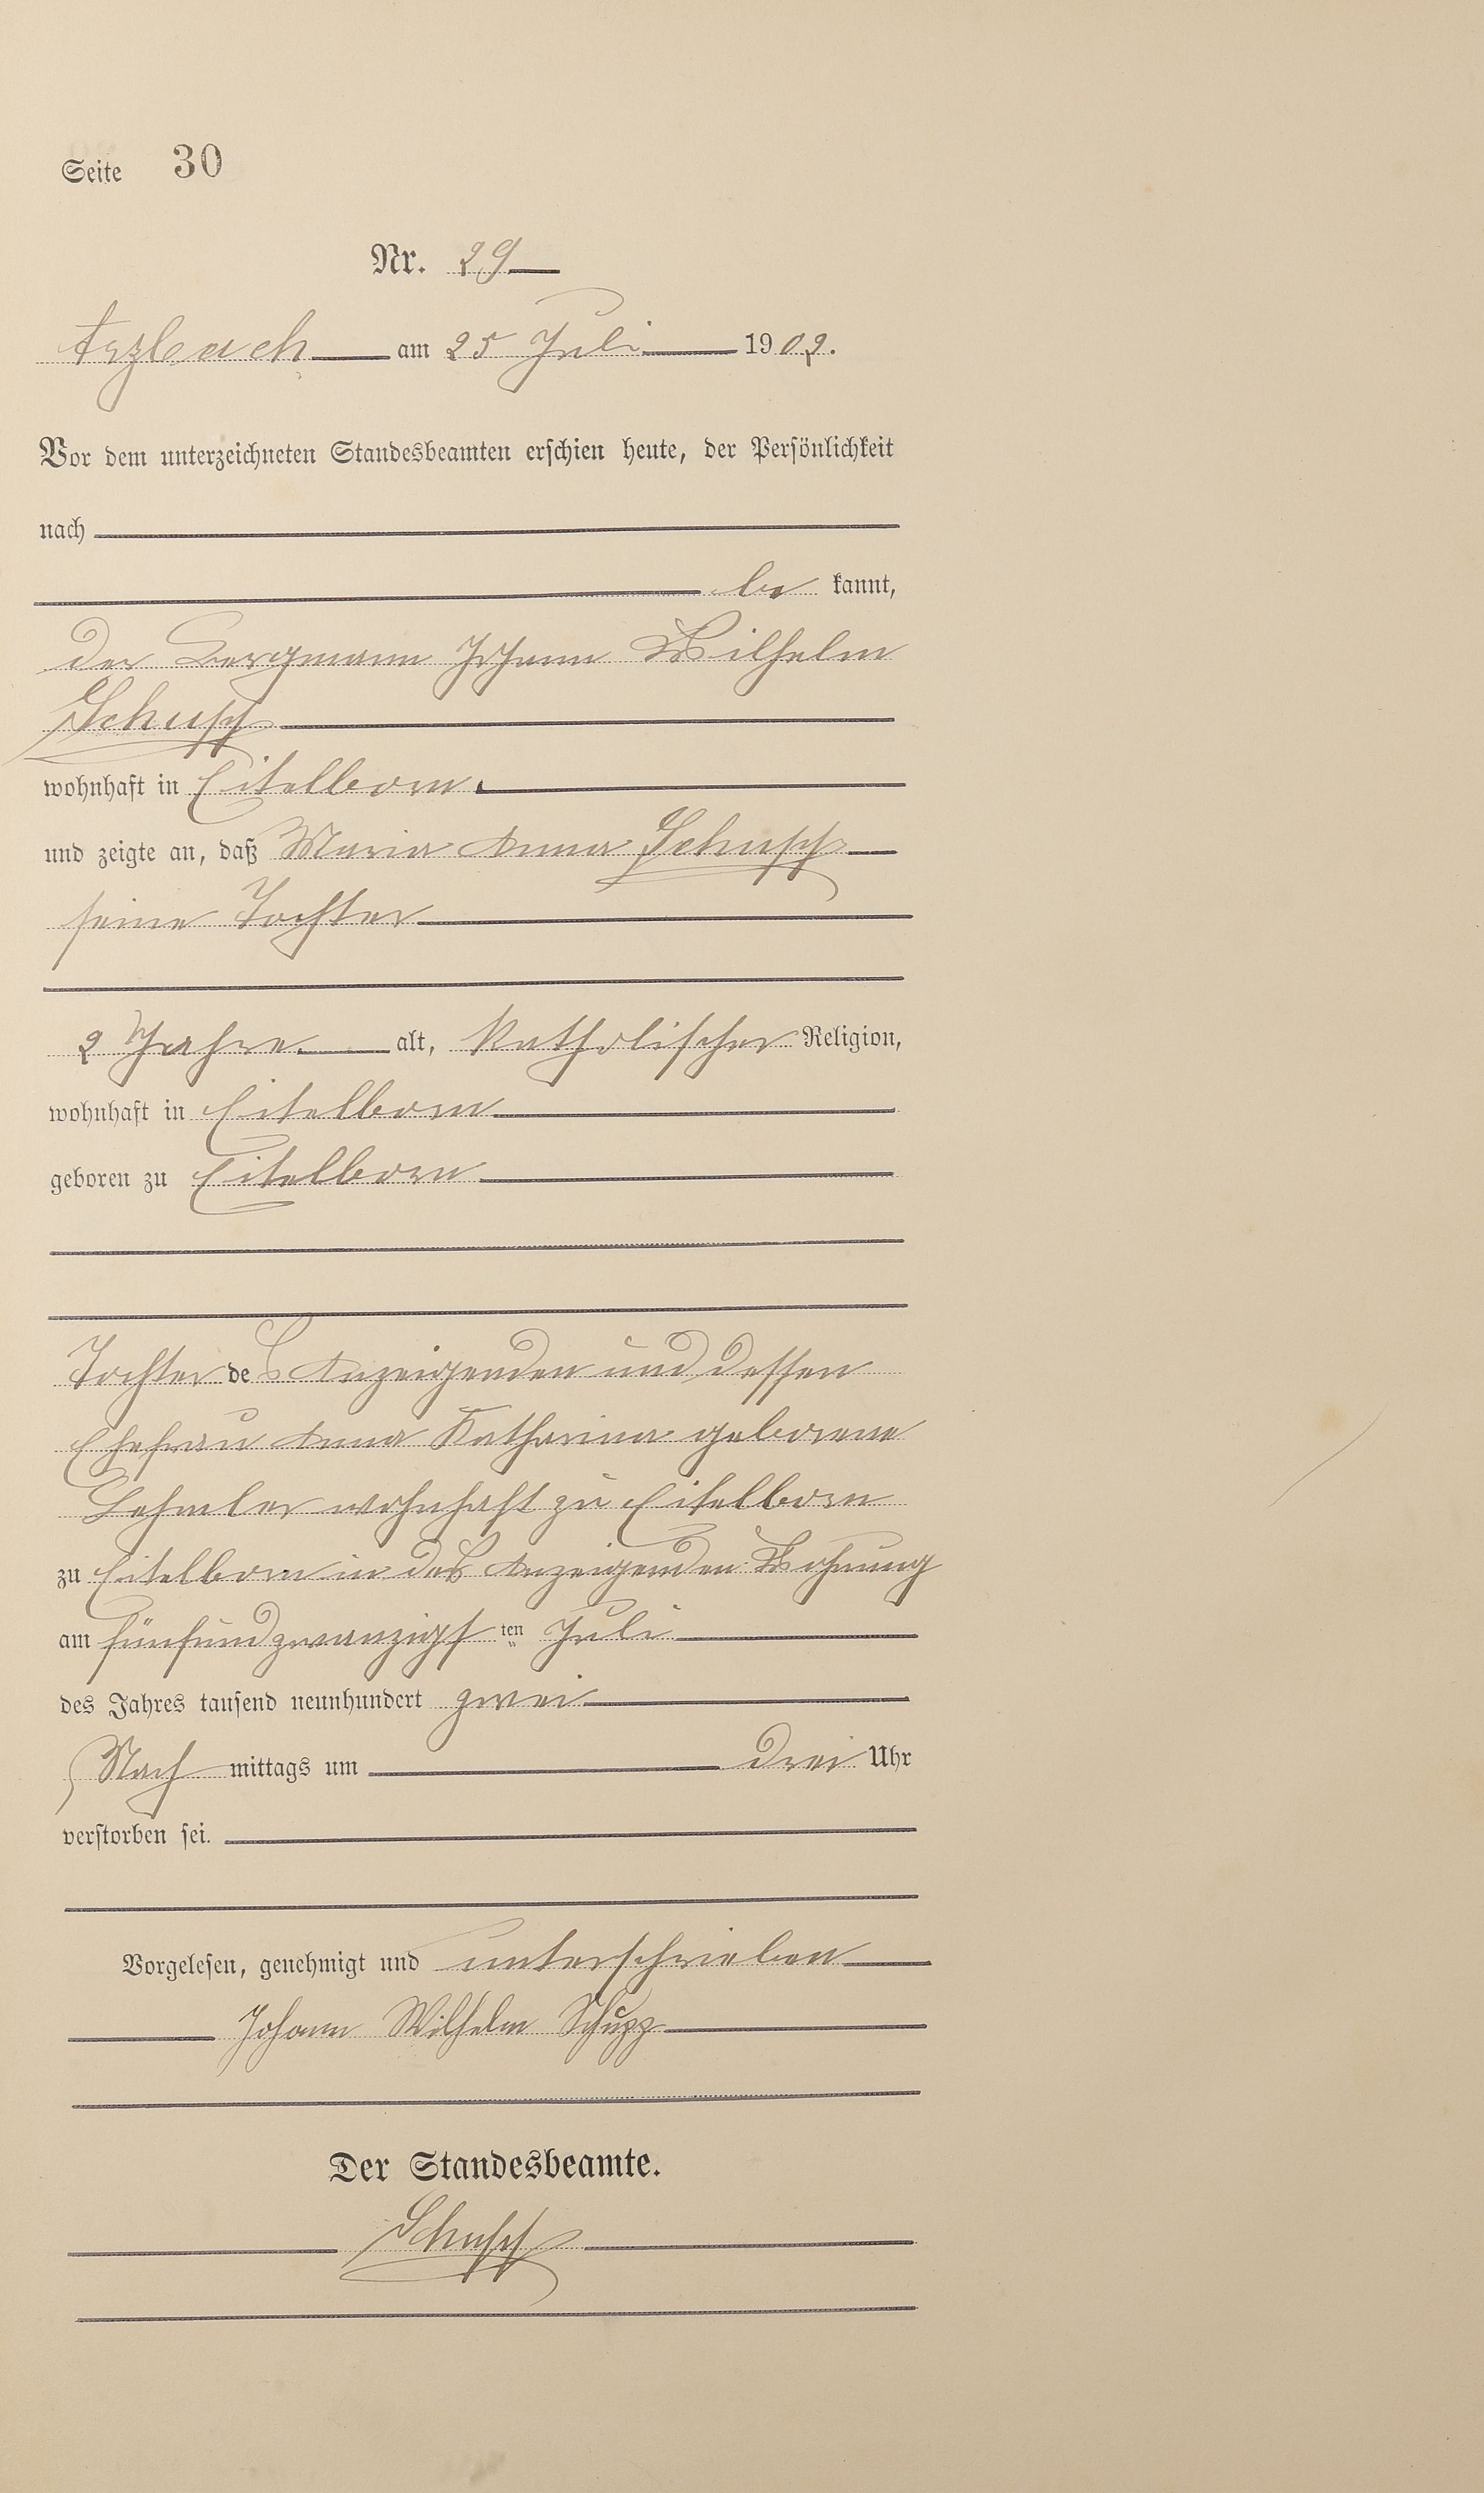 Seite 30
Nr. 29
Arzbach am 25 Juli 1902.
Vor dem unterzeichneten Standesbeamten erschien heute, der Persönlichkeit
nach
be kannt,
der Bergmann Johann Wilhelm
Schupp
wohnhaft in Eitelborn.
und zeigte an, daß Maria Anna Schupp
seine Tochter
2 Jahre alt, katholischer Religion,
wohnhaft in Eitelborn
geboren zu Eitelborn
Tochter des Anzeigenden und dessen
Ehefrau Anna Katharina geborene
wohnhaft zu Eitelborn
zu Eitelborn in des Anzeigenden Wohnung
am fünfundzwanzigsten Juli
des Jahres tausend neunhundert zwei
Nach mittags um drei Uhr
verstorben sei.
Vorgelesen, genehmigt und unterschrieben
Johann Wilhelm Schupp
Der Standesbeamte.
Schupp